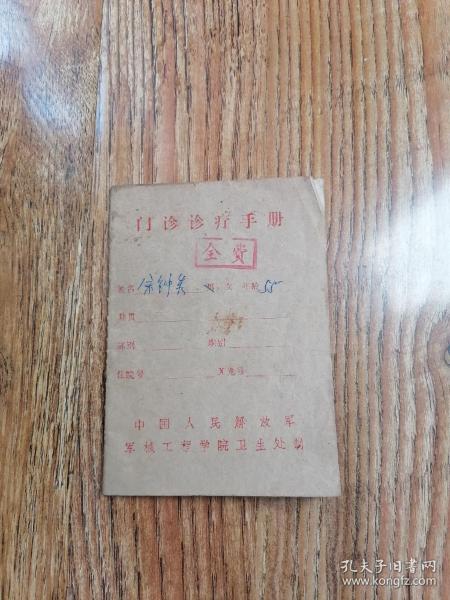 门诊诊疗手册
全费
姓名 男、女 年龄 55
籍贯
部别 职别
住院号 X光号
中国人民解放军
军械工程学院卫生处制
孔夫子旧书网
www.kongfz.com